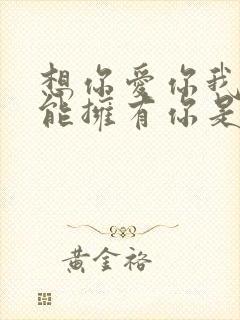 想你愛你我
能擁有你是
黃金裕